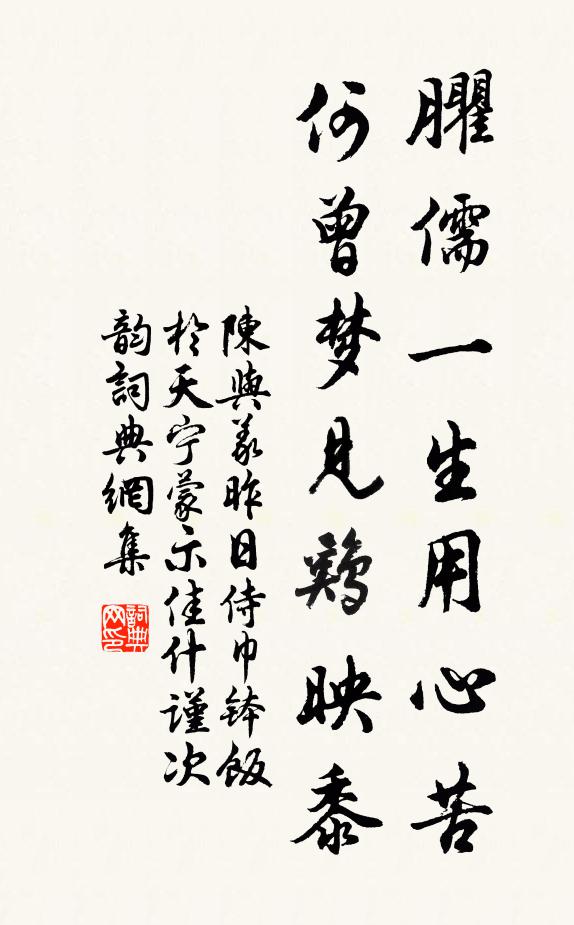 臞儒一生用心苦
何曾梦見鷄映黍
陳與義昨日侍巾鉢飯
於天宁蒙示佳什謹次
韵詞典網集
詞典
网印